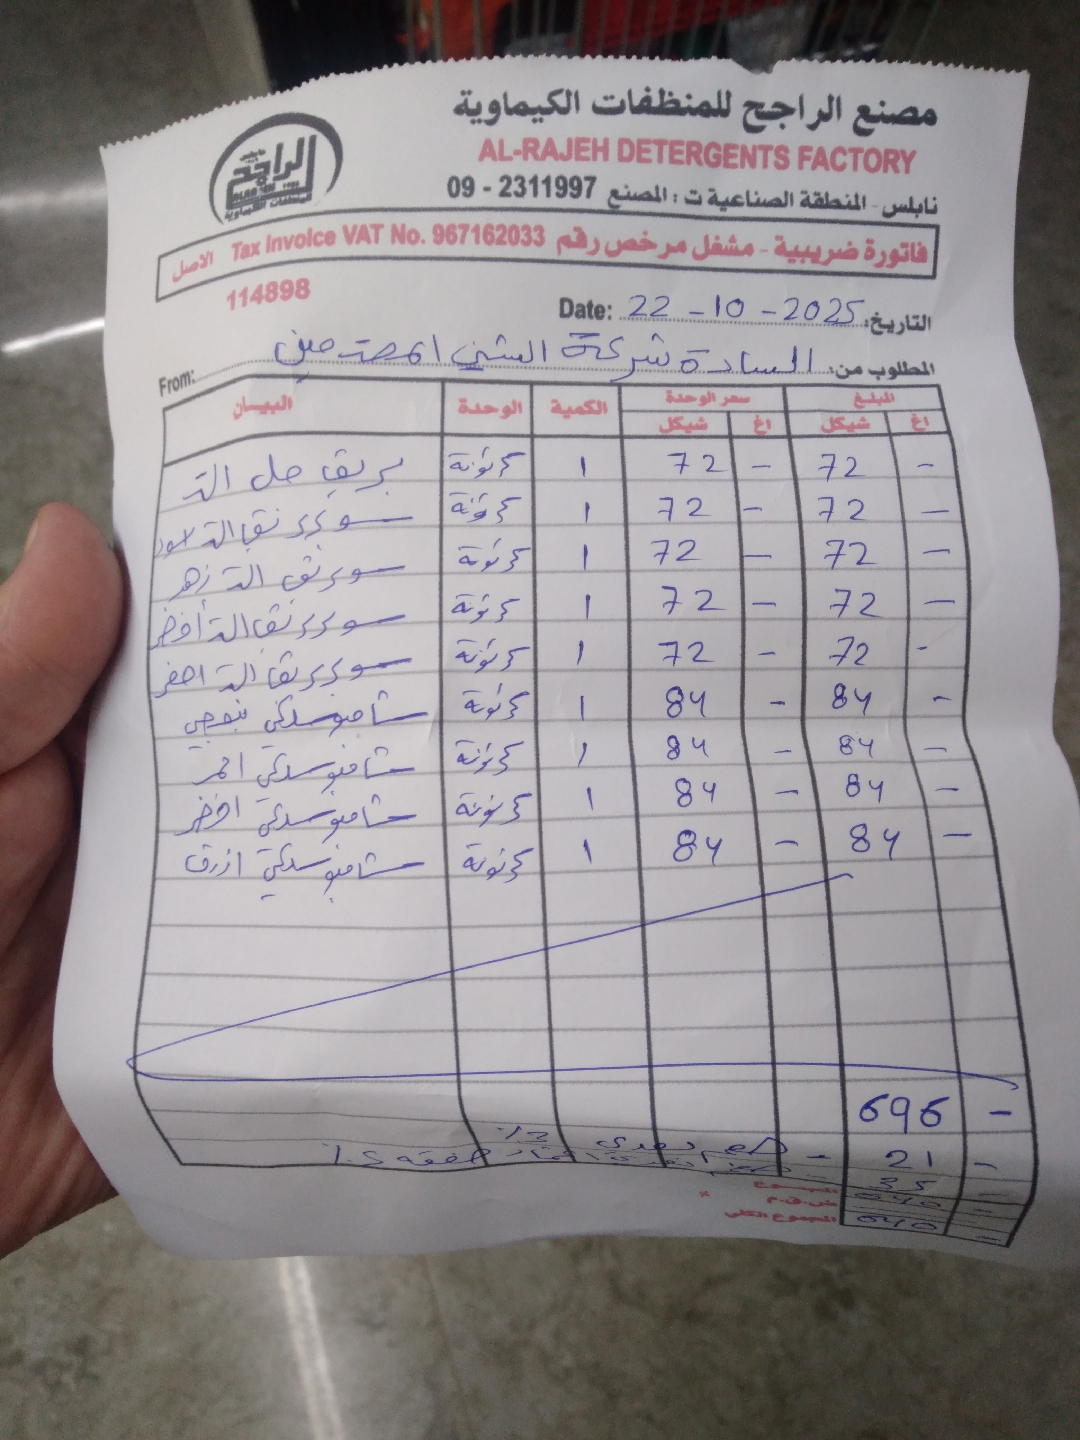 مصنع الراجح للمنظفات الكيماوية
AL-RAJEH DETERGENTS FACTORY
نابلس - المنطقة الصناعية ت : المصنع 2311997 - 09
الراجح
فاتورة ضريبية - مشغل مرخص رقم Tax Invoice VAT No. 967162033 الاصل
114898
التاريخ: Date: 22-10-2025
المطلوب من: السادة شركة الشني From:
البيان الوحدة الكمية سعر الوحدة المبلغ
شيكل اغ شيكل اغ
بريق جل كرتونة 1 72 - 72 -
سوبر كرتونة 1 72 - 72 -
سوبر كرتونة 1 72 - 72 -
سوبر كرتونة 1 72 - 72 -
سوبر كرتونة 1 72 - 72 -
شامبو سيلكي بنفسجي كرتونة 1 84 - 84 -
شامبو سيلكي احمر كرتونة 1 84 - 84 -
شامبو سيلكي اخضر كرتونة 1 84 - 84 -
شامبو سيلكي ازرق كرتونة 1 84 - 84 -
696 -
خصم نقدي - 21 -
المجموع 35 -
ض.ق.م
المجموع الكلي 640 -